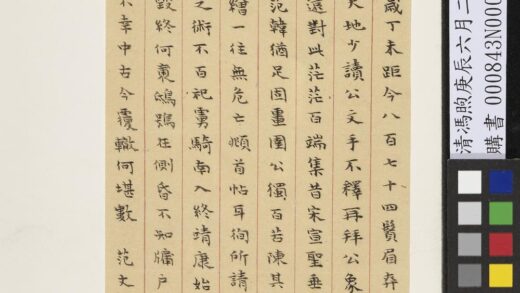 清馮煦庚辰六月二
購書 000843N000
歲丁未距今八百七十四鬢眉奕
天地少讀公文手不釋再拜公象
還對此茫茫百端集昔宋宣聖垂
范韓猶足固畺圉公獨百苦陳其
繒一往無危亡頫首帖耳徇所請
之術不百祀虜騎南入終靖康始
毀終何鴟鴞在側昏不知牖戶
不幸中古今覆轍何堪數 范文